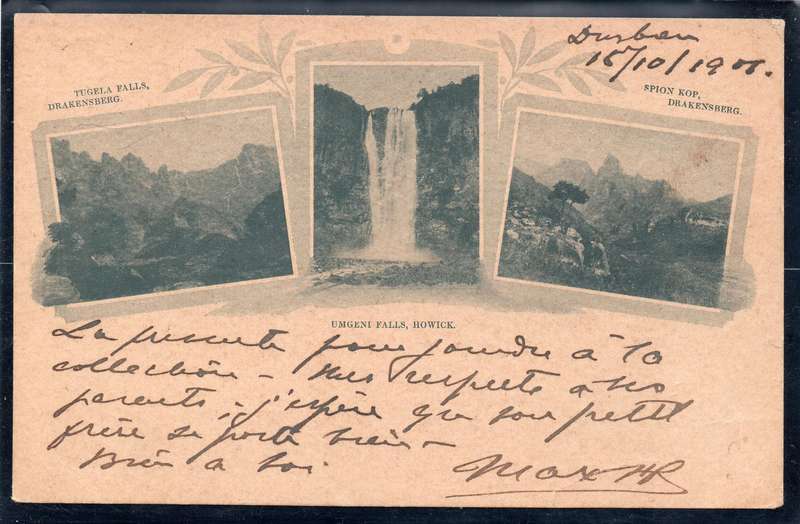 Durban
15/10/1901.
TUGELA FALLS,
DRAKENSBERG.
SPION KOP,
DRAKENSBERG.
UMGENI FALLS, HOWICK.
La presente pour joindre à ta
collection - Mes respects à tes
parents - j'espère que ton petit
frère se porte bien -
Bien à toi.
Max